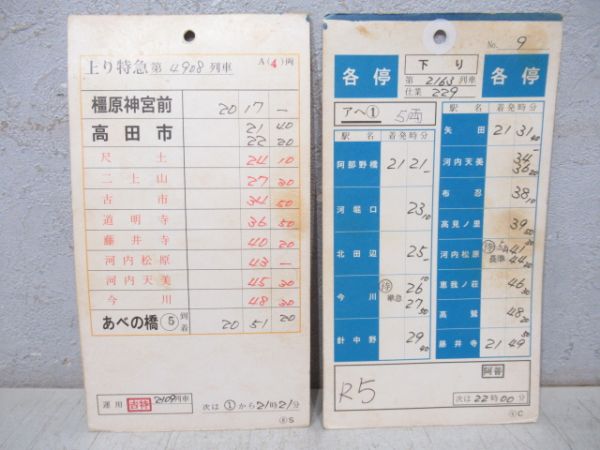 上り特急 第4908列車 A(4)両
橿原神宮前 20 17 —
高田市 21 40
22 20
尺土 24 10
二上山 27 30
古市 34 50
道明寺 36 50
藤井寺 40 20
河内松原 43 —
河内天美 45 30
今川 48 30
あべの橋 ⑤ 到着 20 51 20
運用 古特 2109列車 次は①から21時21分
ⓈS
No. 9
各停 下り 各停
第2163列車
仕業 229
アヘ① 5両
駅名 着発時分
阿部野橋 21 21 —
河堀口 23 10
北田辺 25 —
今川 待 準急 26 10
27 50
針中野 29 40
駅名 着発時分
矢田 21 31
河内天美 34 —
36 30
布忍 38 10
高見ノ里 39 50
河内松原 待 41 20
44 20
恵我ノ荘 46 30
高鷲 48 20
藤井寺 21 49 50
R5 阿普
次は22時00分
C